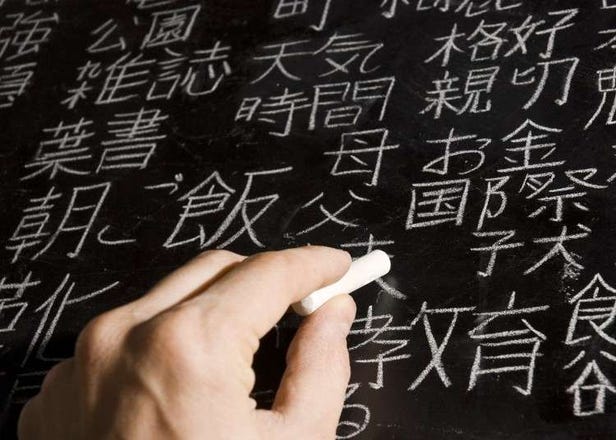 町
強 公園 格好
雑誌 天気 親切
時間
葉書 母 お金
朝ご飯 父 国際
子犬
化 教育 食
る 谷